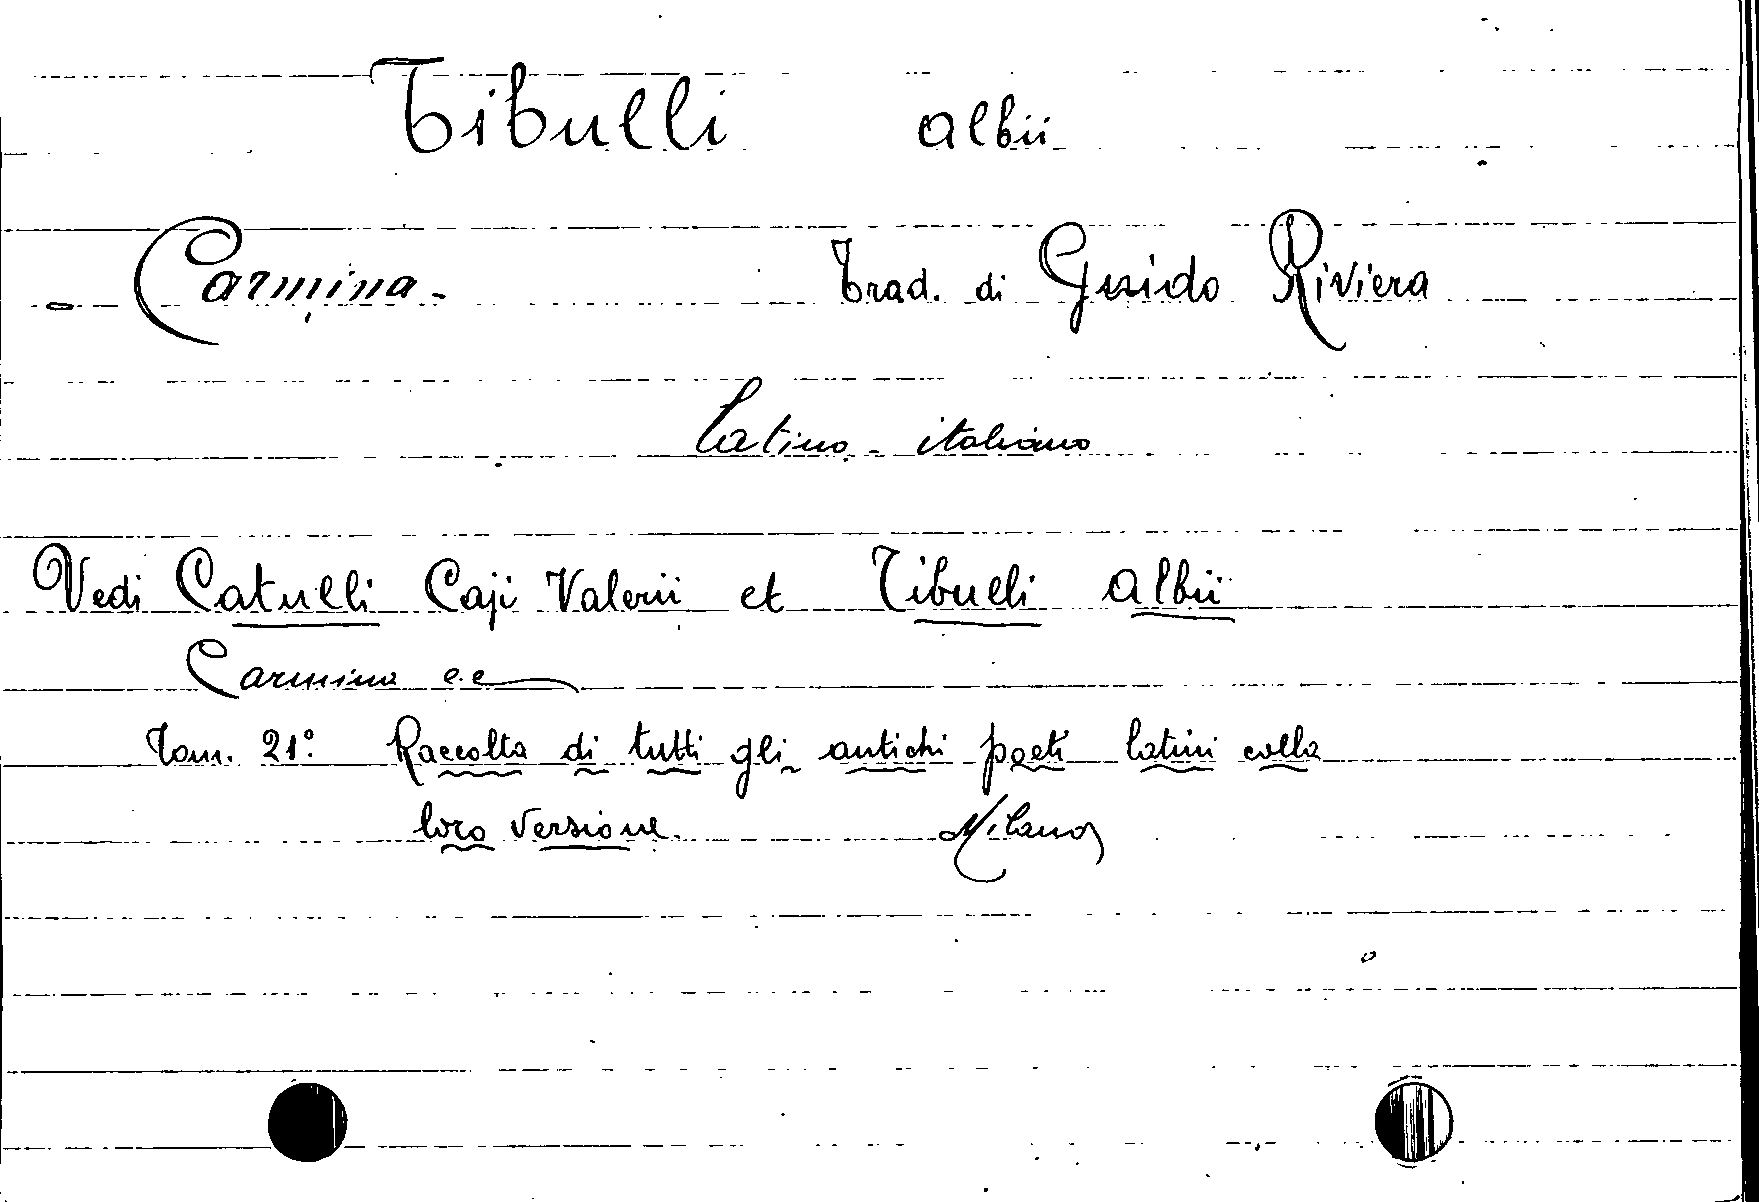 Tibulli Albii
- Carmina - Trad. di Guido Riviera
Latino - italiano
Vedi Catulli Caji Valerii et Tibulli Albii
Carmina e.c
Tom. 21° Raccolta di tutti gli antichi poeti latini colla
loro versione. Milano